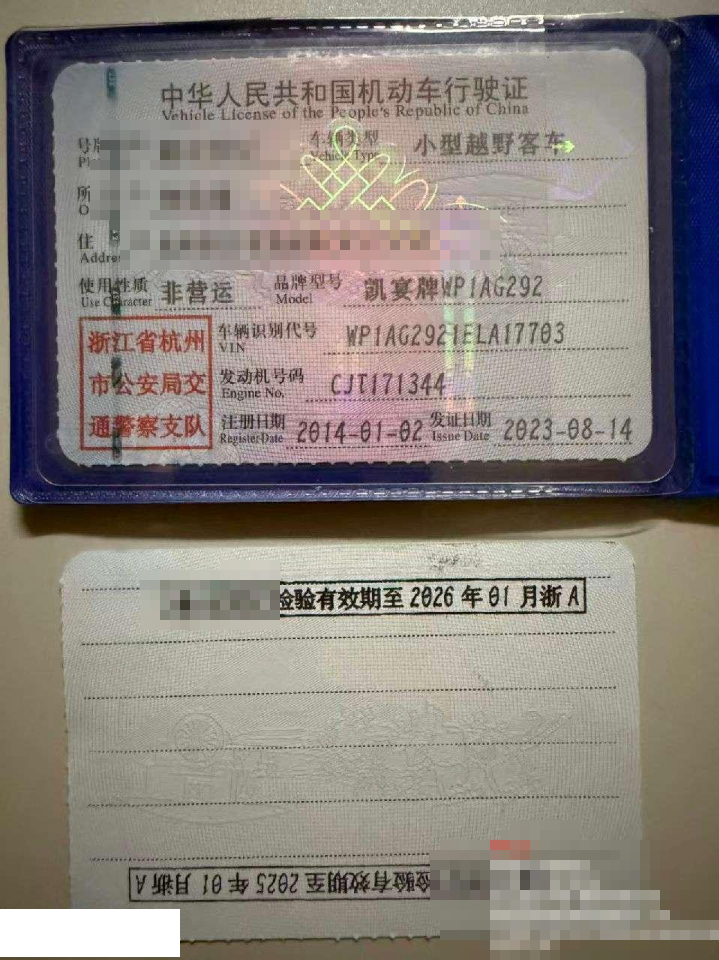 中华人民共和国机动车行驶证
Vehicle License of the People's Republic of China
号牌 车辆类型 小型越野客车
Vehicle Type
所
住
Address
使用性质 非营运 品牌型号 凯宴牌WP1AG292
Use Character Model
浙江省杭州
市公安局交
通警察支队
车辆识别代号 WP1AG2921ELA17703
VIN
发动机号码 CJT171344
Engine No.
注册日期 2014-01-02 发证日期 2023-08-14
Register Date Issue Date
检验有效期至 2026 年 01 月浙A
检验有效期至 2025 年 01 月浙A